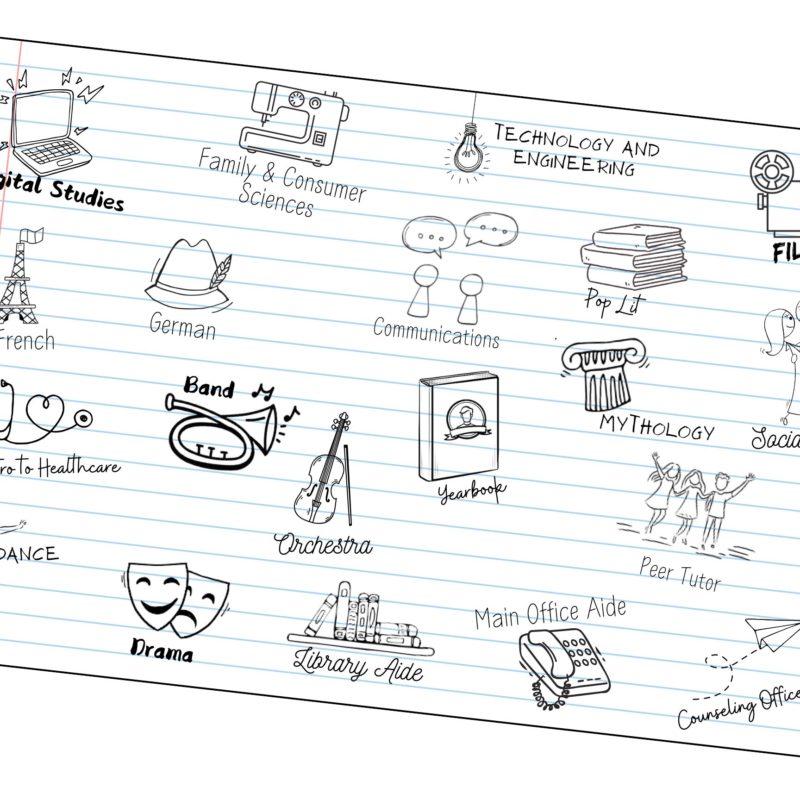 gital Studies
Family & Consumer
Sciences
TECHNOLOGY AND
ENGINEERING
FIL
French
German
Communications
Pop Lit
MYTHOLOGY
Socia
ro to Healthcare
Band
Orchestra
Yearbook
Peer Tutor
DANCE
Drama
Library Aide
Main Office Aide
Counseling Office